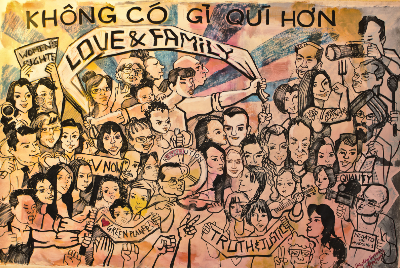 KHÔNG CÓ GÌ QUÍ HƠN
LOVE & FAMILY
WOMEN'S
RIGHTS
V NOW
EQUALITY
GREEN PLANET
TRUTH & JUSTICE